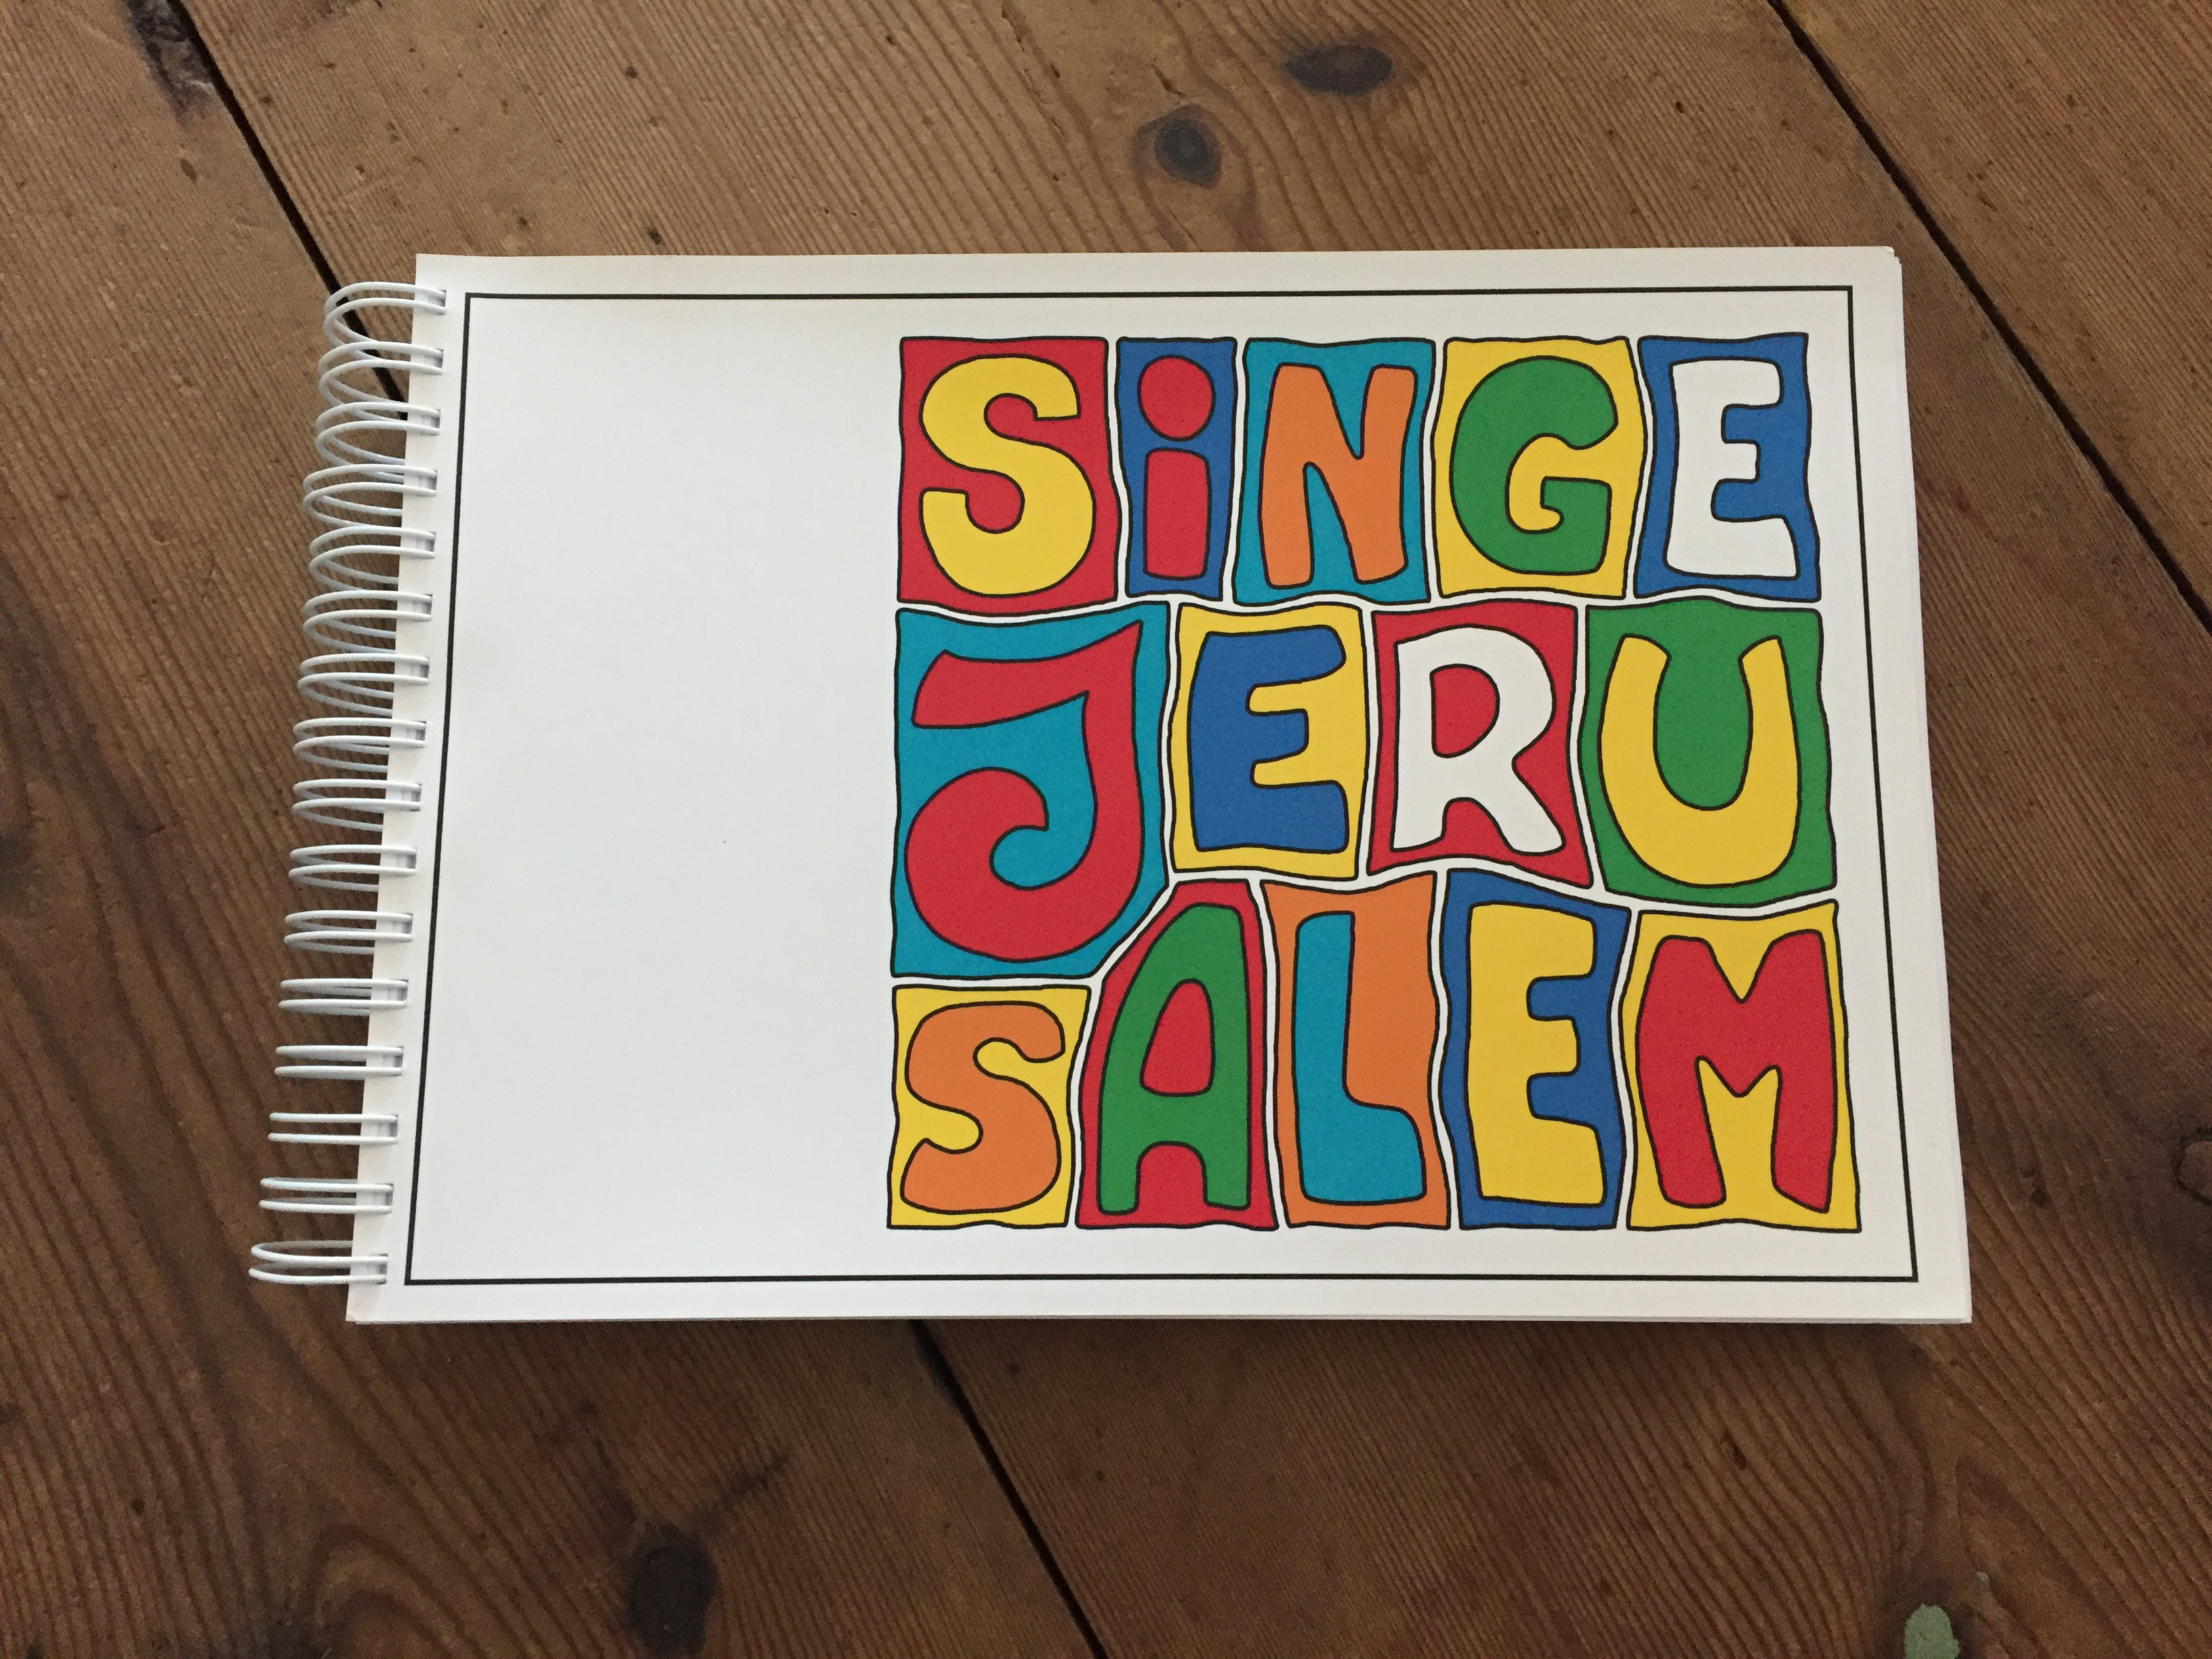 SiNGE
JERU
SALEM